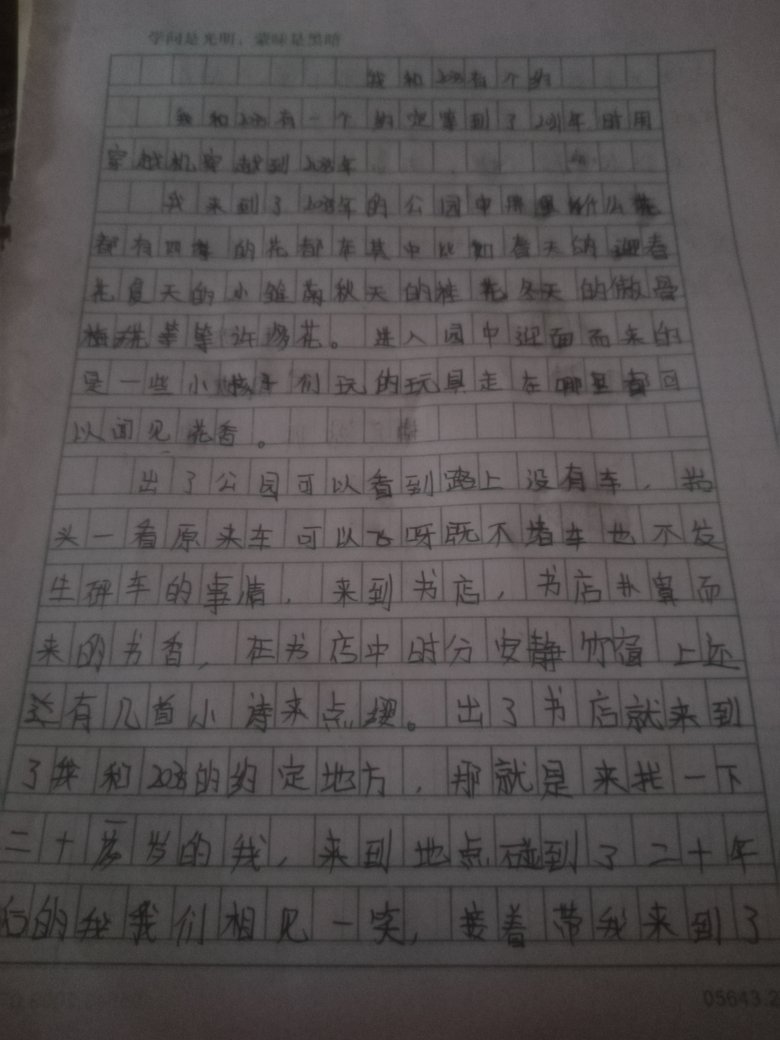 学问是光明，蒙昧是黑暗
我和2035有个约
我和2035有一个约定等到了2035年时用
穿越机穿越到2035年
我来到了2035年的公园中
都有四季的花都在其中比如春天的迎春
花夏天的小雏菊秋天的桂花冬天的傲骨
梅花等等许多花。进入园中迎面而来的
是一些小孩子们玩的玩具走在哪里都可
以闻见花香。
出了公园可以看到路上没有车，抬
头一看原来车可以飞呀既不堵车也不发
生碎车的事情，来到书店，书店扑鼻而
来的书香，在书店中时分安静竹 上还
有几首小诗来点缀。出了书店就来到
了我和2035的约定地方，那就是来找一下
二十 岁的我，来到地点碰到了二十年
后的我我们相见一笑，接着带我来到了
05643.2